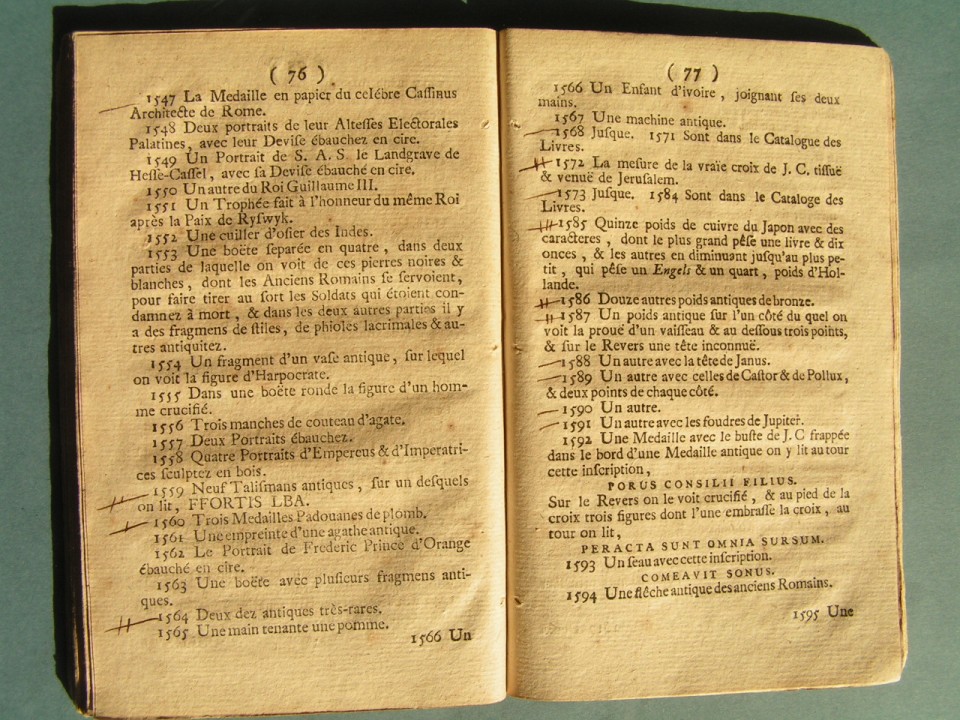 ( 76 )
1547 La Medaille en papier du celébre Caſſinus
Architecte de Rome.
1548 Deux portraits de leur Alteſſes Electorales
Palatines, avec leur Deviſe ébauchez en cire.
1549 Un Portrait de S. A. S. le Landgrave de
Heſſe-Caſſel, avec ſa Deviſe ébauché en cire.
1550 Un autre du Roi Guillaume III.
1551 Un Trophée fait à l'honneur du même Roi
après la Paix de Ryſwyk.
1552 Une cuiller d'oſier des Indes.
1553 Une boëte ſeparée en quatre, dans deux
parties de laquelle on voit de ces pierres noires &
blanches, dont les Anciens Romains ſe ſervoient,
pour faire tirer au ſort les Soldats qui étoient con-
damnez à mort, & dans les deux autres parties il y
a des fragmens de ſtiles, de phioles lacrimales & au-
tres antiquitez.
1554 Un fragment d'un vaſe antique, ſur lequel
on voit la figure d'Harpocrate.
1555 Dans une boëte ronde la figure d'un hom-
me crucifié.
1556 Trois manches de couteau d'agate.
1557 Deux Portraits ébauchez.
1558 Quatre Portraits d'Empereus & d'Imperatri-
ces ſculptez en bois.
1559 Neuf Taliſmans antiques, ſur un deſquels
on lit, FFORTIS LBA.
1560 Trois Medailles Padouanes de plomb.
1561 Une empreinte d'une agathe antique.
1562 Le Portrait de Frederic Prince d'Orange
ébauché en cire.
1563 Une boëte avec pluſieurs fragmens anti-
ques.
1564 Deux dez antiques très-rares.
1565 Une main tenante une pomme.
1566 Un
( 77 )
1566 Un Enfant d'ivoire, joignant ſes deux
mains.
1567 Une machine antique.
1568 Juſque. 1571 Sont dans le Catalogue des
Livres.
1572 La meſure de la vraïe croix de J. C. tiſſuë
& venuë de Jeruſalem.
1573 Juſque. 1584 Sont dans le Cataloge des
Livres.
1585 Quinze poids de cuivre du Japon avec des
caracteres, dont le plus grand pêſe une livre & dix
onces, & les autres en diminuant juſqu'au plus pe-
tit, qui pêſe un Engels & un quart, poids d'Hol-
lande.
1586 Douze autres poids antiques de bronze.
1587 Un poids antique ſur l'un côté du quel on
voit la prouë d'un vaiſſeau & au deſſous trois points,
& ſur le Revers une tête inconnuë.
1588 Un autre avec la tête de Janus.
1589 Un autre avec celles de Caſtor & de Pollux,
& deux points de chaque côté.
1590 Un autre.
1591 Un autre avec les foudres de Jupiter.
1592 Une Medaille avec le buſte de J. C frappée
dans le bord d'une Medaille antique on y lit au tour
cette inſcription,
PORUS CONSILII FILIUS.
Sur le Revers on le voit crucifié, & au pied de la
croix trois figures dont l'une embraſſe la croix, au
tour on lit,
PERACTA SUNT OMNIA SURSUM.
1593 Un ſeau avec cette inſcription.
COMEAVIT SONUS.
1594 Une flêche antique des anciens Romains.
1595 Une